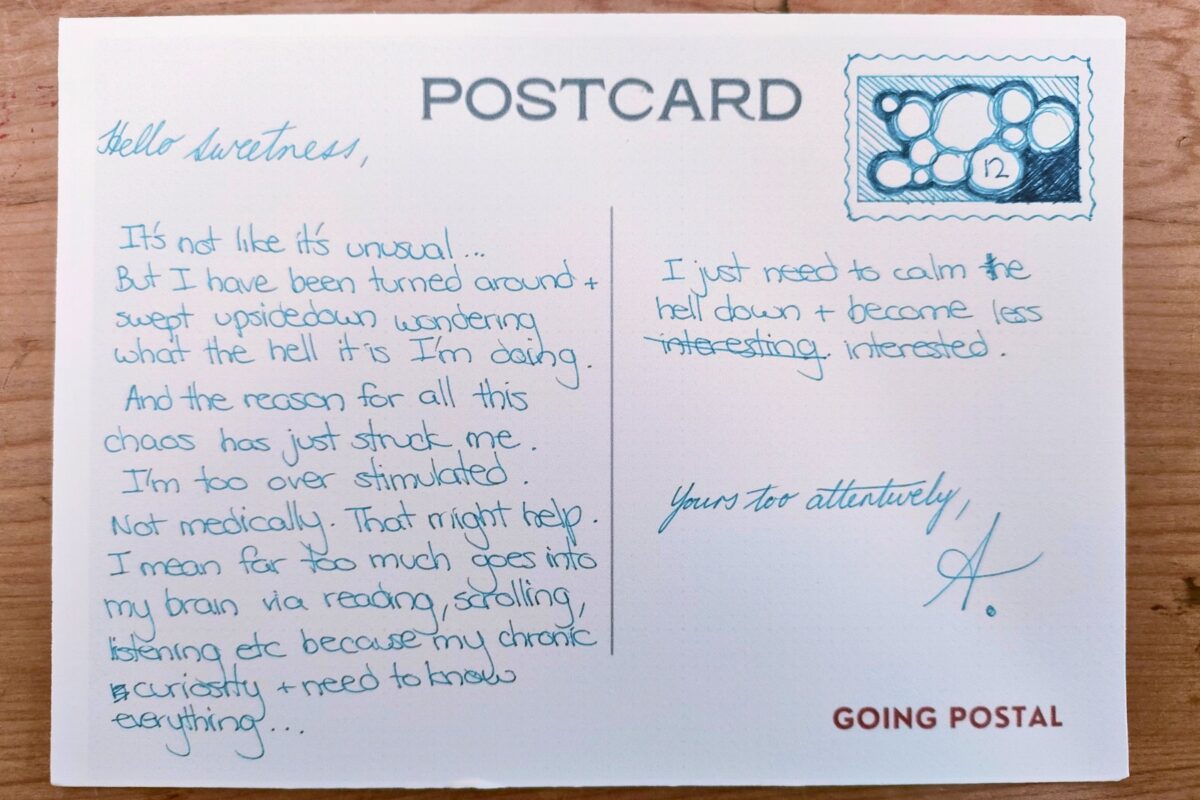 POSTCARD
12
Hello sweetness,
It's not like it's unusual...
But I have been turned around +
swept upsidedown wondering
what the hell it is I'm doing.
And the reason for all this
chaos has just struck me.
I'm too over stimulated.
Not medically. That might help.
I mean far too much goes into
my brain via reading, scrolling,
listening etc because my chronic
curiosity + need to know
everything...
I just need to calm the
hell down + become less
interesting. interested.
Yours too attentively,
A.
GOING POSTAL